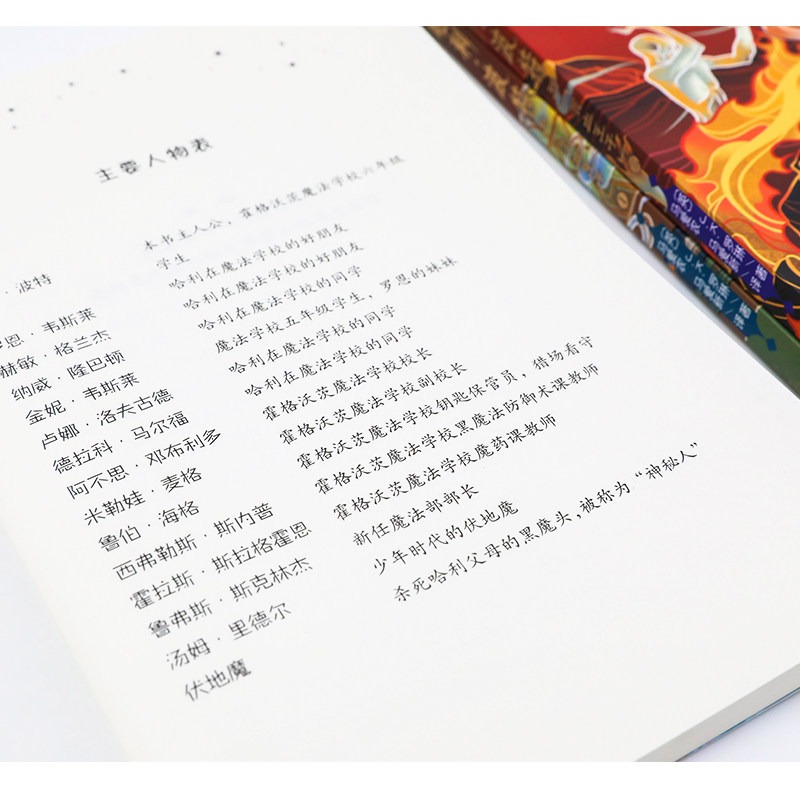 主要人物表
·波特 本书主人公，霍格沃茨魔法学校六年级
学生
恩·韦斯莱 哈利在魔法学校的好朋友
赫敏·格兰杰 哈利在魔法学校的好朋友
纳威·隆巴顿 哈利在魔法学校的同学
金妮·韦斯莱 魔法学校五年级学生，罗恩的妹妹
卢娜·洛夫古德 哈利在魔法学校的同学
德拉科·马尔福 哈利在魔法学校的同学
阿不思·邓布利多 霍格沃茨魔法学校校长
米勒娃·麦格 霍格沃茨魔法学校副校长
鲁伯·海格 霍格沃茨魔法学校钥匙保管员，猎场看守
西弗勒斯·斯内普 霍格沃茨魔法学校黑魔法防御术课教师
霍拉斯·斯拉格霍恩 霍格沃茨魔法学校魔药课教师
鲁弗斯·斯克林杰 新任魔法部部长
汤姆·里德尔 少年时代的伏地魔
伏地魔 杀死哈利父母的黑魔头,被称为“神秘人”
〔英〕J.K.罗琳／著
马爱农 马爱新／译
〔英〕J.K.罗琳／著
马爱农 马爱新／译